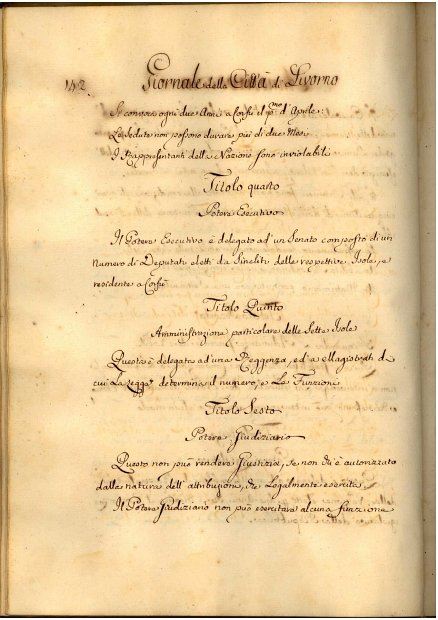 142
Giornale della Città di Livorno
Si convoca ogni due Anni a Corfù il pmo d'Aprile:
Le sedute non possono durare più di due Mesi
I Rappresentanti della Nazione sono inviolabili
Titolo quarto
Potere Esecutivo
Il Potere Esecutivo è delegato ad' un Senato composto di un
Numero di Deputati eletti da Sincliti delle respettive Isole, e
residente a Corfù
Titolo Quinto
Amministrazione particolare delle Sette Isole
Questa è delegata ad una Reggenza, ed a Magistrati di
cui La Legge determina il numero, e Le Funzioni
Titolo Sesto
Potere Giudiziario
Questo non può rendere Giustizia, se non chi è autorizzato
dalla natura dell' attribuzioni, che Legalmente esercita
Il Potere Giudiziario non può esercitare alcuna funzione